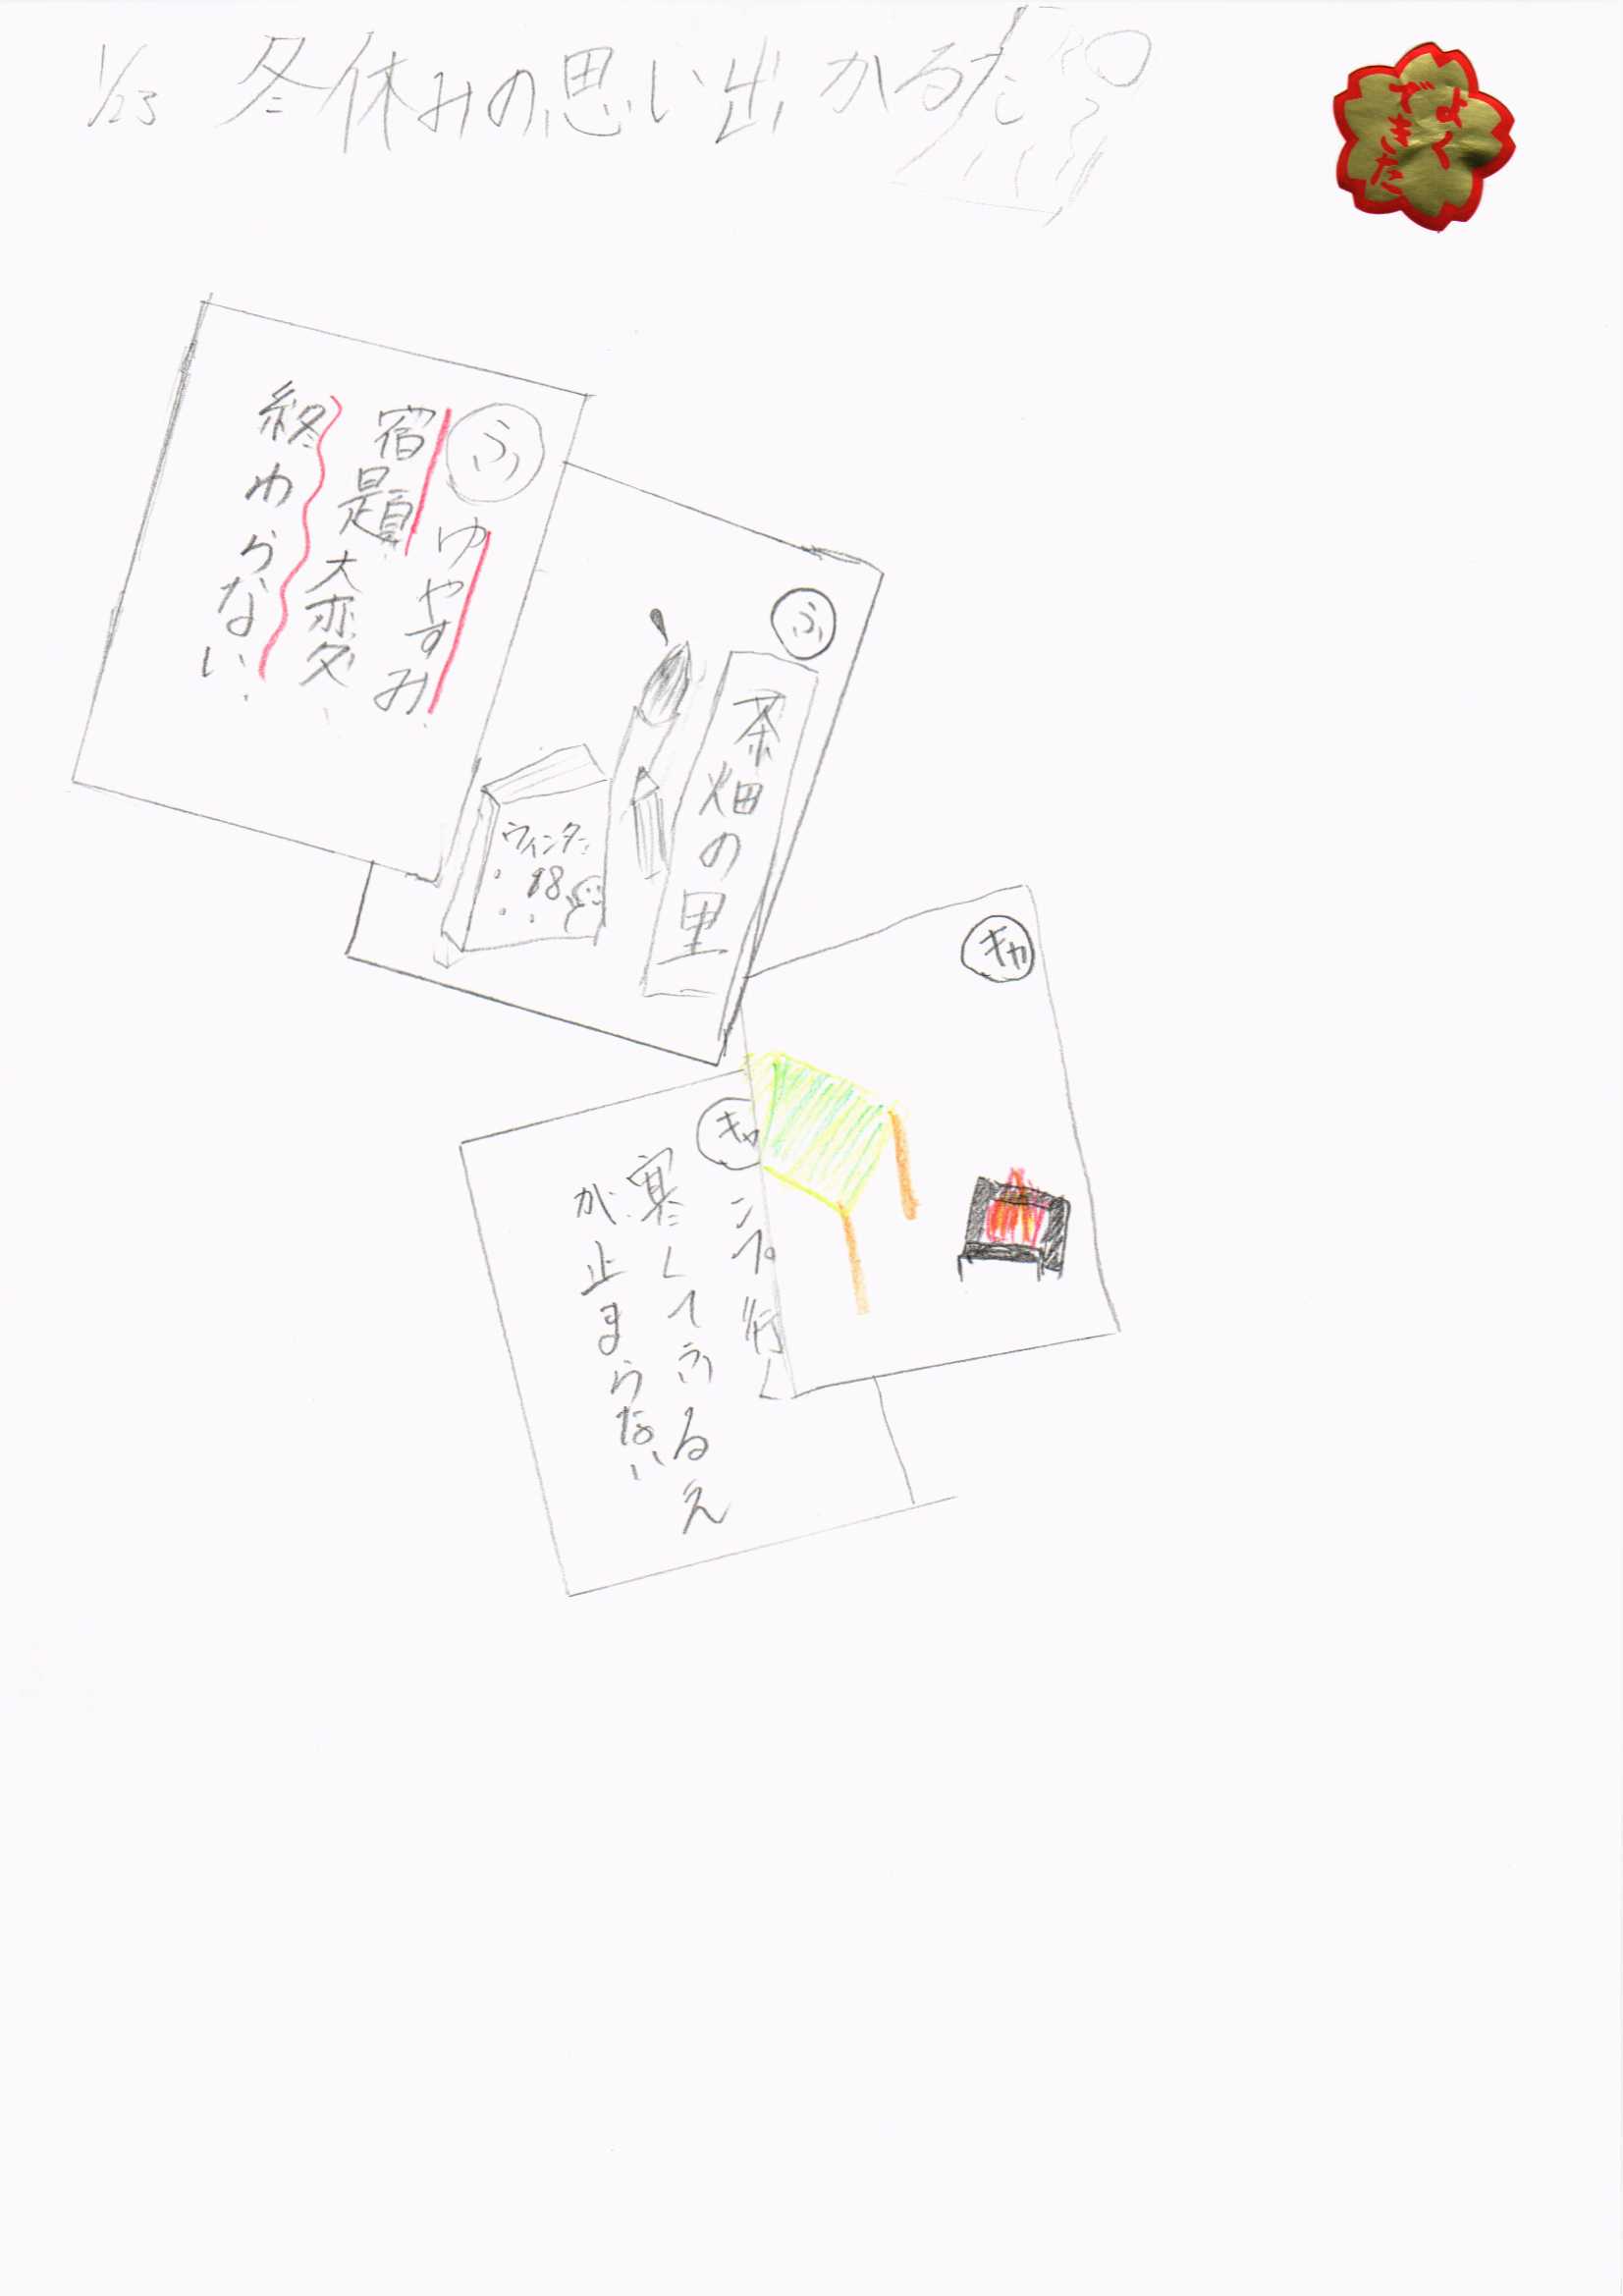 1/23 冬休みの思い出かるた
よく
できた
ふ
ゆやすみ
宿題大変
終わらない
ふ
茶畑の里
ウィンター
18
キャ
キャ
ンプ行く
寒くてふるえ
が止まらない